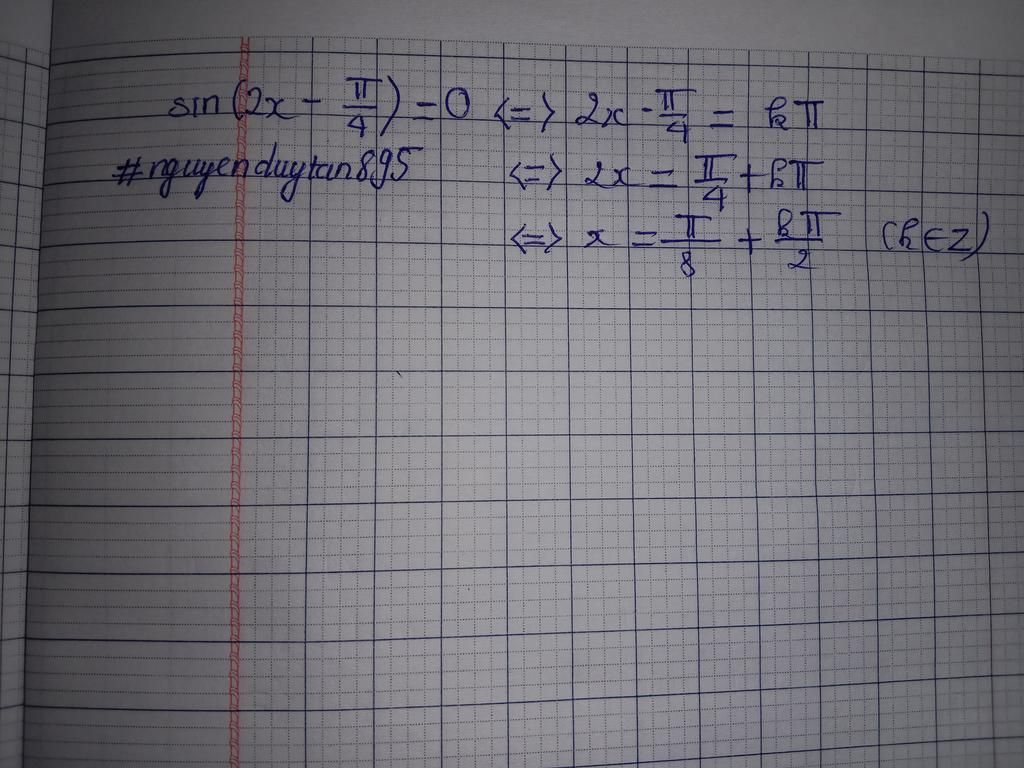 sin(2x - π/4) = 0 <=> 2x - π/4 = kπ
#nguyenduytan895 <=> 2x = π/4 + kπ
<=> x = π/8 + kπ/2 (k ∈ Z)